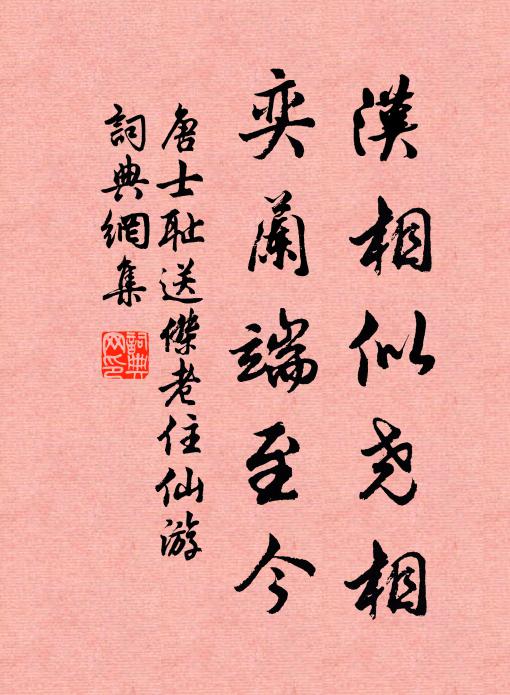 漢相似尧相
奕蘭端至今
唐士耻送傑老住仙游
詞典網集
詞典網印